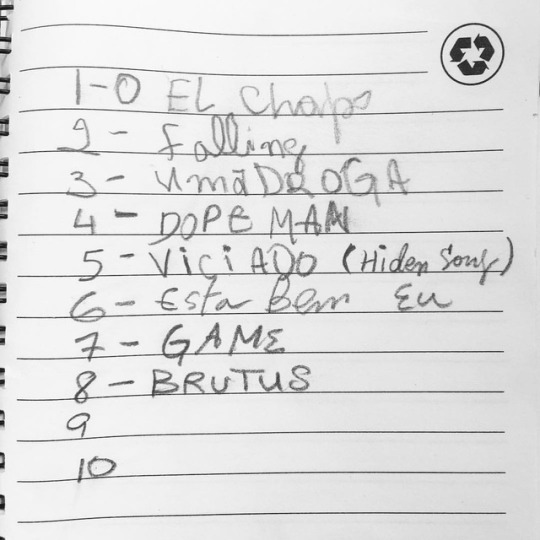 1-O EL Chapo
2 - falling
3 - UmaDROGA
4 - DOPE MAN
5 - ViCiADO (Hiden Song)
6 - Esta Bem Eu
7 - GAME
8 - BRUTUS
9
10